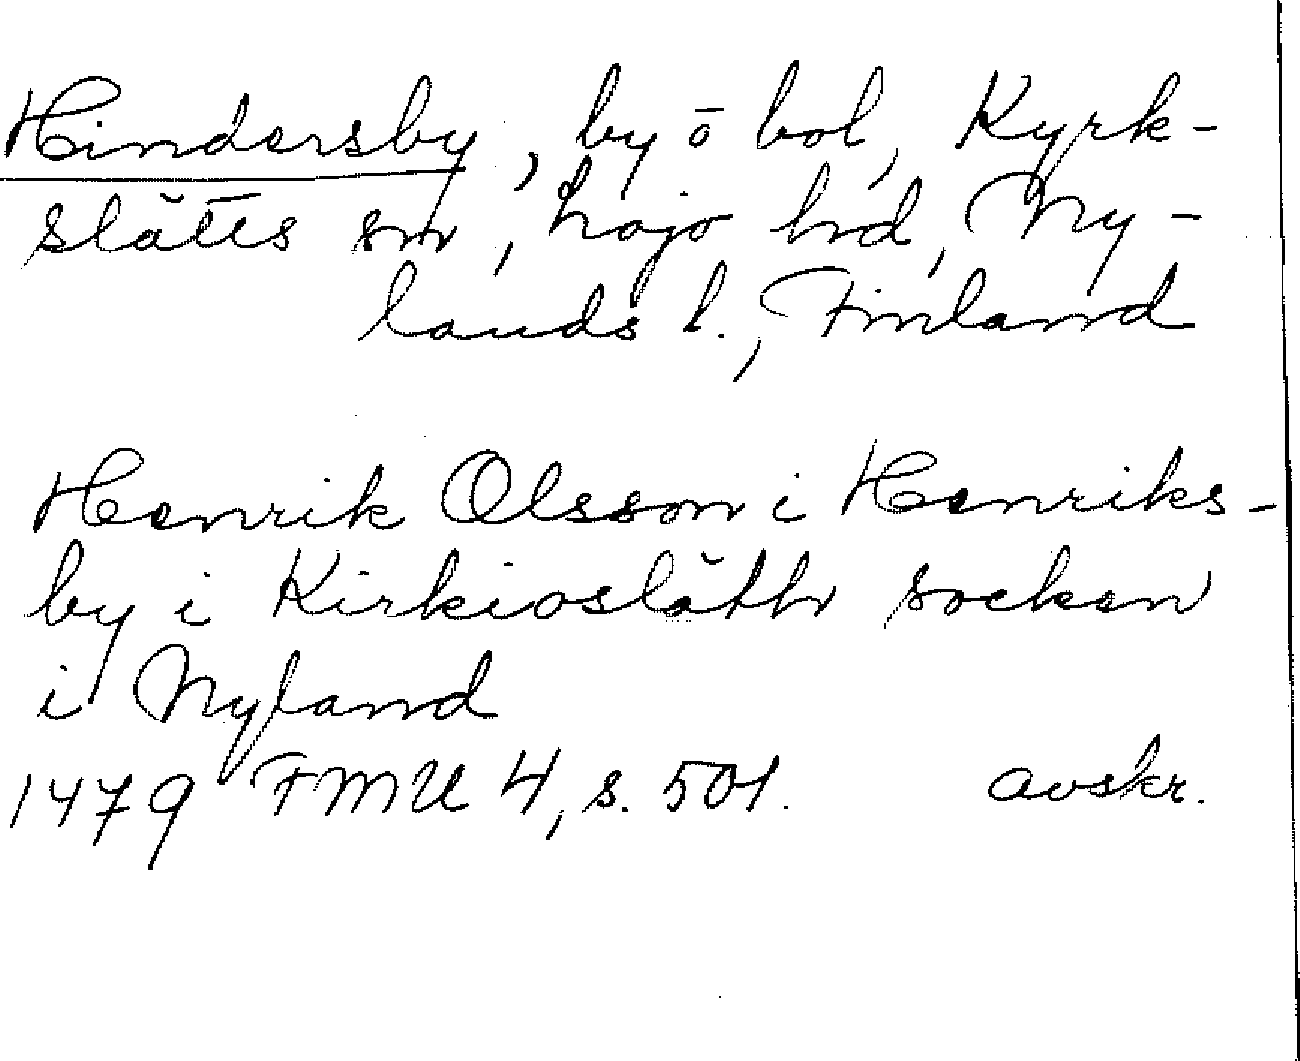 Hindersby, by o bol, Kyrk-
slätts sn, Lojo hd, Ny-
lands l., Finland
Henrik Olsson i Henriks-
by i Kirkiosläth socken
i Nyland
1479 FMU 4, s. 501. avskr.